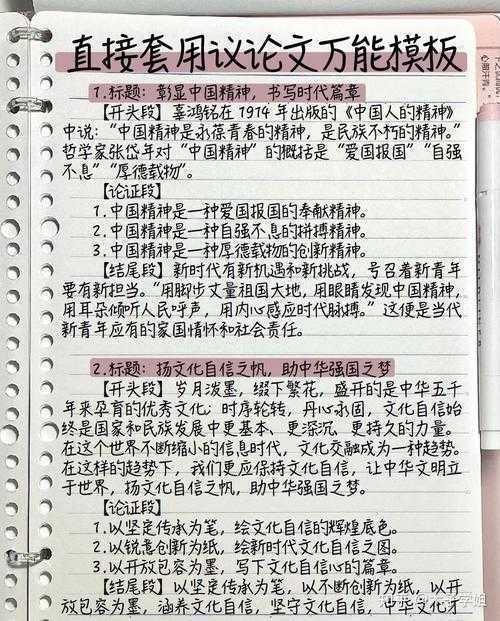 直接套用议论文万能模板
1.标题：彰显中国精神，书写时代篇章
【开头段】辜鸿铭在1914年出版的《中国人的精神》
中说：“中国精神是永葆青春的精神，是民族不朽的精神。”
哲学家张岱年对“中国精神”的概括是“爱国报国”“自强
不息”“厚德载物”。
【论证段】
1.中国精神是一种爱国报国的奉献精神。
2.中国精神是一种自强不息的拼搏精神。
3.中国精神是一种厚德载物的创新精神。
【结尾段】新时代有新机遇和新挑战，号召着新青年
要有新担当。“用脚步丈量祖国大地，用眼睛发现中国精神，
用耳朵倾听人民呼声，用内心感应时代脉搏。”这便是当代
新青年应有的家国情怀和社会责任。
2.标题：扬文化自信之帆，助中华强国之梦
【开头段】岁月泼墨，缀下繁花，盛开的是中华五千
年来孕育的优秀文化；时序轮转，丹心永固，文化自信始
终是国家和民族发展中更基本、更深沉、更持久的力量。
在这个世界不断缩小的信息时代，文化交融成为一种趋势。
在这样的趋势下，我们更应保持文化自信，让中华文明立
于世界，扬文化自信之帆，助中华强国之梦。
【论证段】
1.以坚定传承为笔，绘文化自信的辉煌底色。
2.以锐意创新为纸，绘新时代文化自信之图。
3.以开放包容为墨，写下文化自信心的篇章。
【结尾段】以坚定传承为笔，以不断创新为纸，以开
放包容为墨，涵养文化自信，坚守文化自信，中华文才